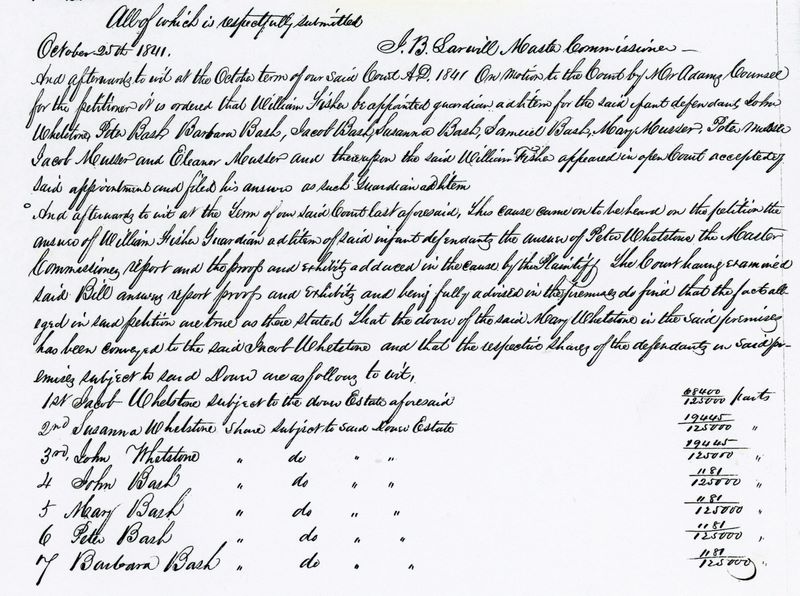 All of which is respectfully submitted
October 25th 1841. J. B. Larwill Master Commissioner —
And afterwards to wit at the October term of our said Court A.D. 1841 On motion to the Court by Mr Adams Counsel
for the petitioner it is ordered that William Fisher be appointed guardian adlitem for the said infant defendants John
Whetstone, Peter Bash Barbara Bash, Jacob Bash Susanna Bash, Samuel Bash, Mary Musser, Peter Musser
Jacob Musser and Eleanor Musser and thereupon the said William Fisher appeared in open Court accepted of
said appointment and filed his answer as such Guardian adlitem
And afterwards to wit at the Term of our said Court last aforesaid, This cause came on to be heard on the petition the
answer of William Fisher Guardian adlitem of said infant defendants the answer of Peter Whetstone the Master
Commissioners report and the proof and exhibits adduced in the cause by the Plaintiff The Court having examined
said Bill answers report proof and exhibits and being fully advised in the premises do find that the facts all-
eged in said petition are true as there stated That the dower of the said Mary Whetstone in the said premises
has been conveyed to the said Jacob Whetstone and that the respective shares of the defendants in said pr-
emises subject to said Dower are as follows to wit,
1st Jacob Whetstone subject to the dower Estate aforesaid 68400/125000 parts
2nd Susanna Whetstone share subject to said Dower Estate 19445/125000 "
3rd, John Whetstone " do " " 19445/125000 "
4 John Bash " do " " 1181/125000 "
5 Mary Bash " do " " 1181/125000 "
6 Peter Bash " do " " 1181/125000 "
7 Barbara Bash " do " " 1181/125000 "